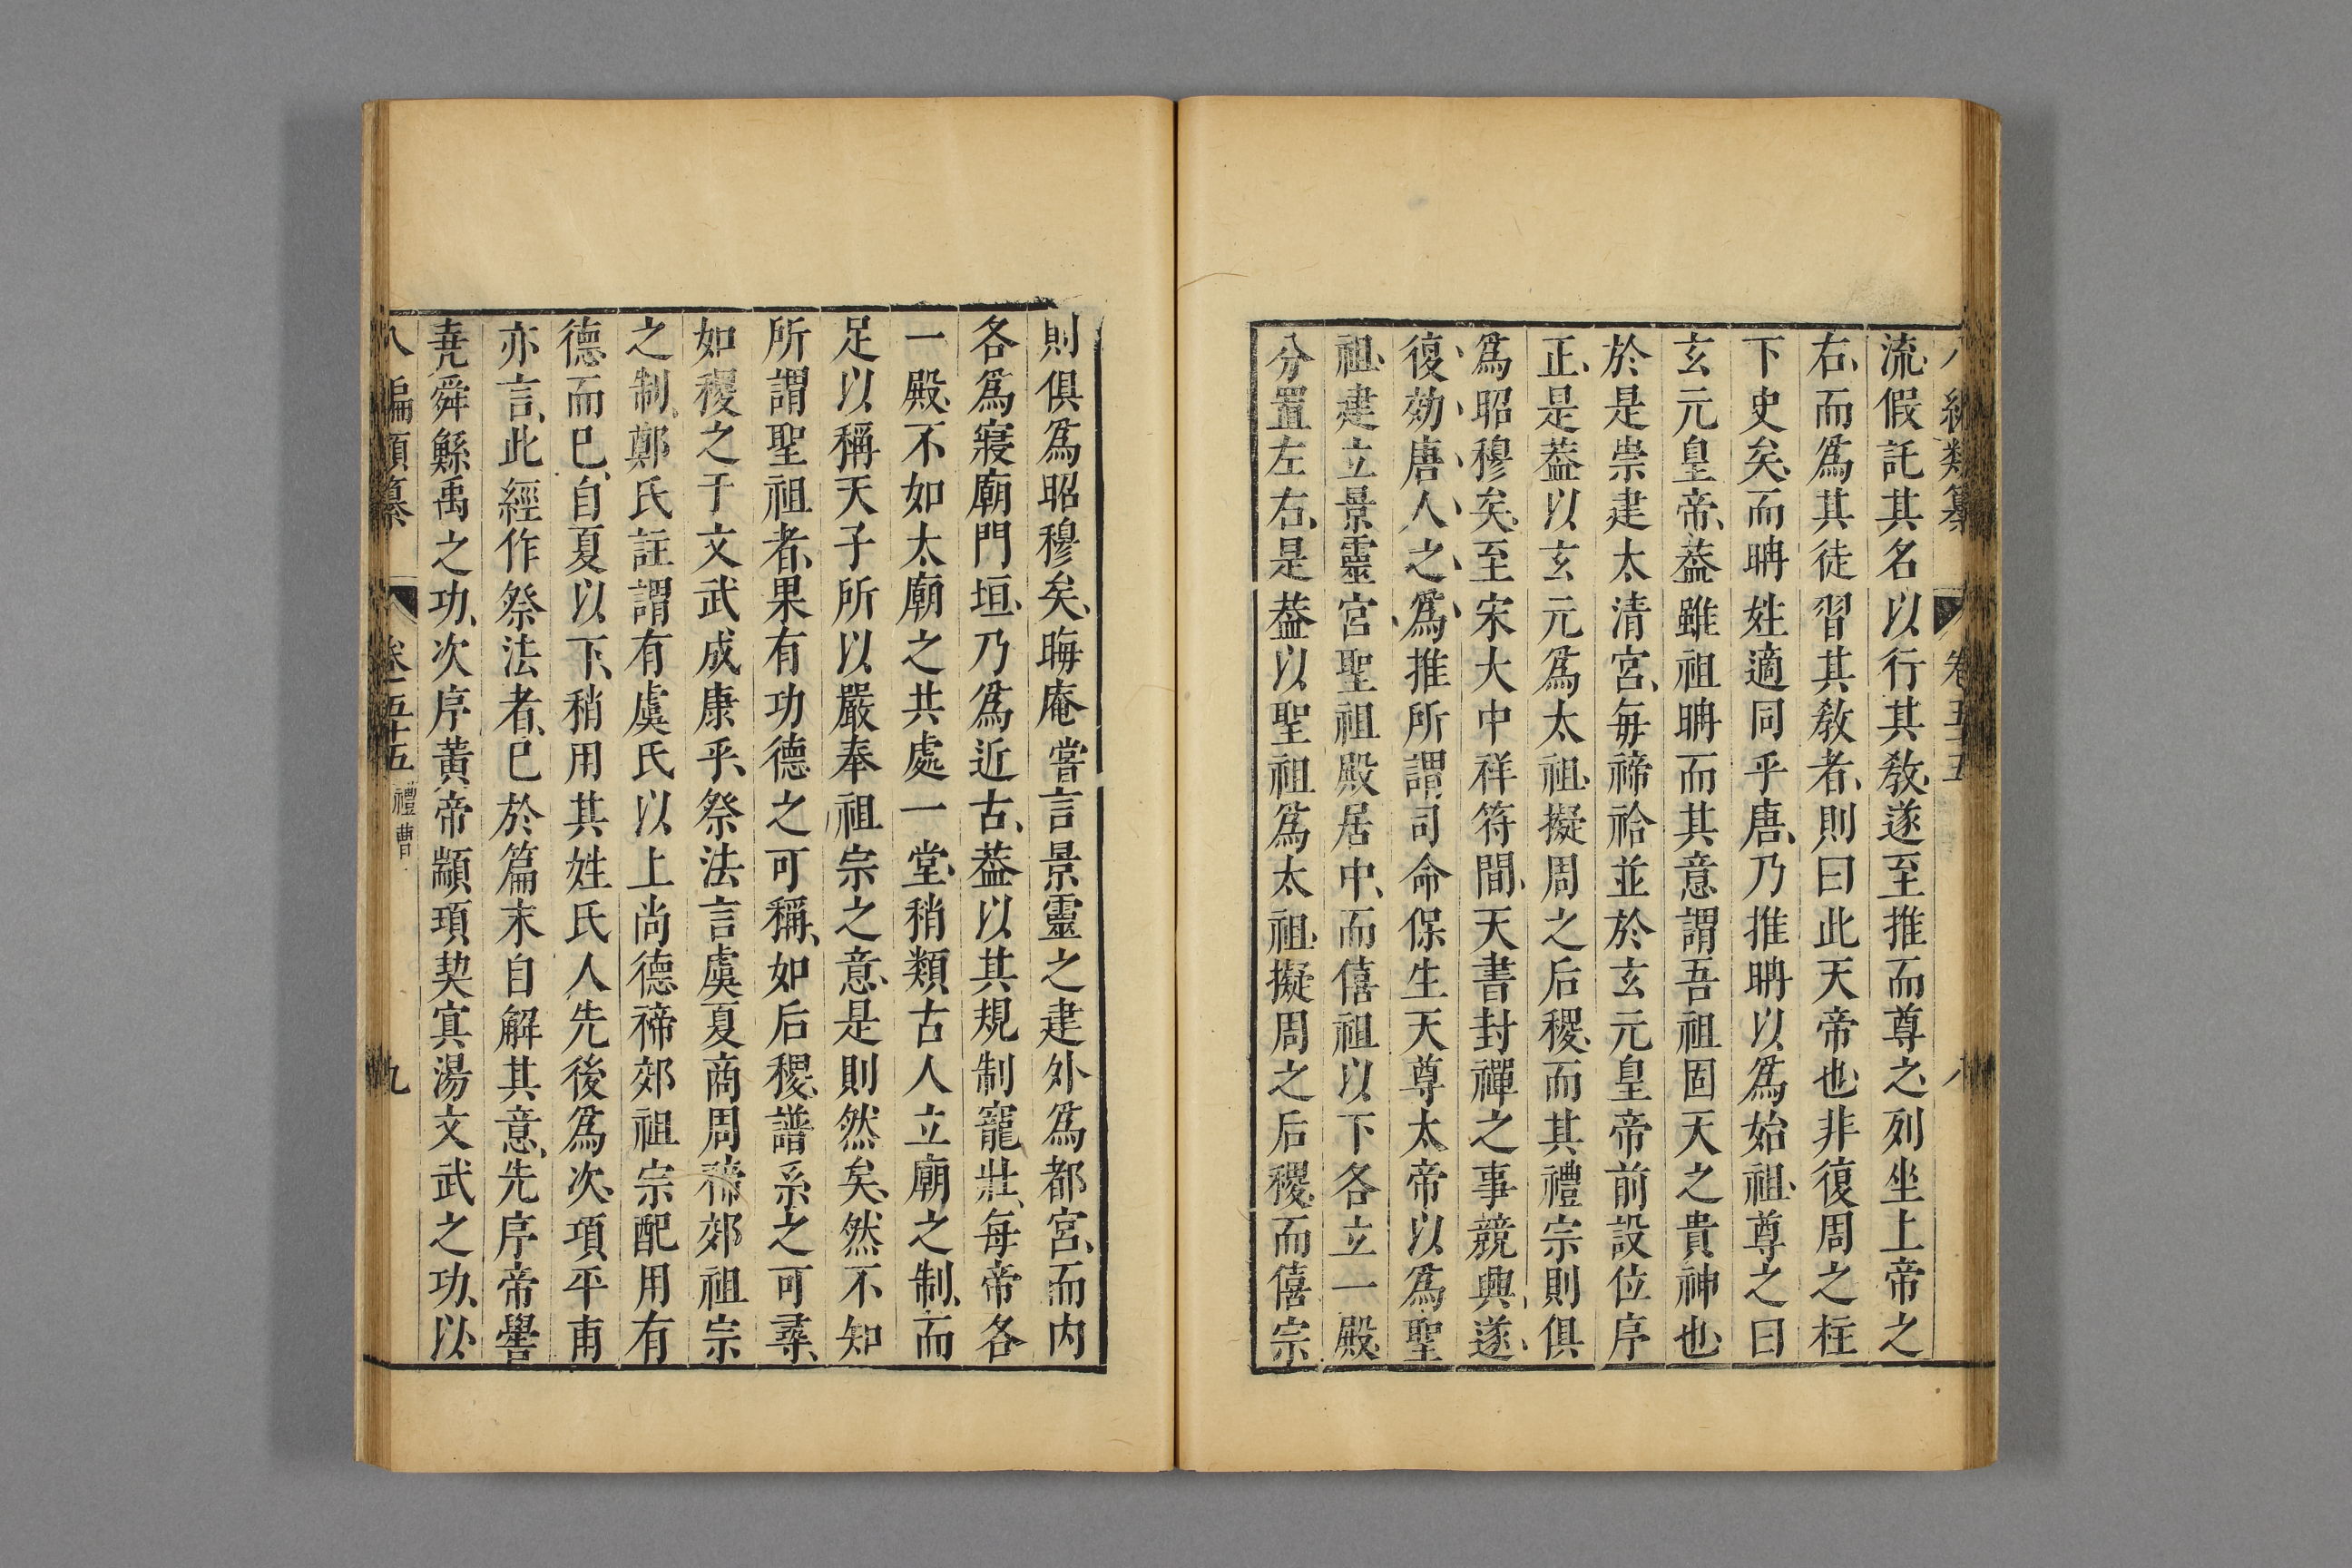 流假託其名以行其教遂至推而尊之列坐上帝之
右而爲其徒習其教者則曰此天帝也非復周之柱
下史矣而聃姓適同乎唐乃推聃以爲始祖尊之曰
玄元皇帝葢雖祖聃而其意謂吾祖固天之貴神也
於是崇建太清宮每禘祫並於玄元皇帝前設位序
正是葢以玄元爲太祖擬周之后稷而其禮宗則俱
爲昭穆矣至宋大中祥符間天書封禪之事競興遂
復効唐人之爲推所謂司命保生天尊太帝以爲聖
祖建立景靈宮聖祖殿居中而僖祖以下各立一殿
分置左右是葢以聖祖爲太祖擬周之后稷而僖宗
則俱爲昭穆矣晦庵嘗言景靈之建外爲都宮而内
各爲寢廟門垣乃爲近古葢以其規制寵壯每帝各
一殿不如太廟之共處一堂稍類古人立廟之制而
足以稱天子所以嚴奉祖宗之意是則然矣然不知
所謂聖祖者果有功德之可稱如后稷譜系之可尋
如稷之于文武成康乎祭法言虞夏商周禘郊祖宗
之制鄭氏註謂有虞氏以上尚德禘郊祖宗配用有
德而巳自夏以下稍用其姓氏人先後爲次項平甫
亦言此經作祭法者巳於篇末自解其意先序帝嚳
堯舜鯀禹之功次序黃帝顓頊契㝠湯文武之功以
八編類纂 卷五十五 禮曹 九